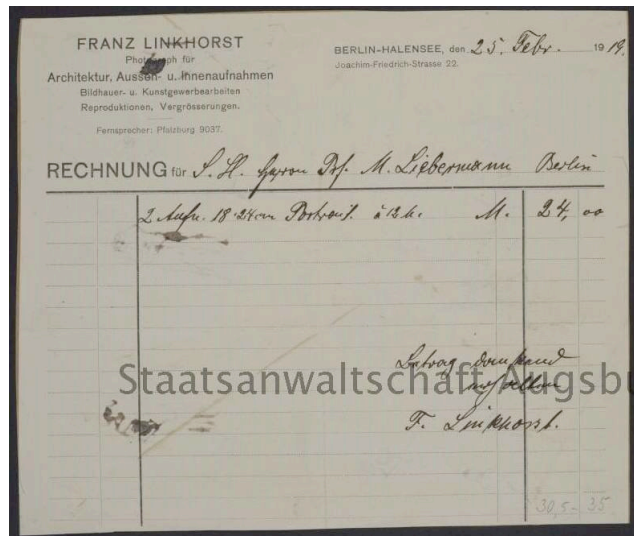 FRANZ LINKHORST
Photograph für
Architektur, Aussen- u. Innenaufnahmen
Bildhauer- u. Kunstgewerbearbeiten
Reproduktionen, Vergrösserungen.
Fernsprecher: Pfalzburg 9037.
BERLIN-HALENSEE, den 25. Febr. 1919.
Joachim-Friedrich-Strasse 22.
RECHNUNG für S. H. Herrn Prf. M. Liebermann Berlin
2 Aufn. 18-24 cm Portrait. à 12 M. M. 24,00
Betrag dankend
erhalten
Staatsanwaltschaft Augsbu
F. Linkhorst.
30,5 - 35